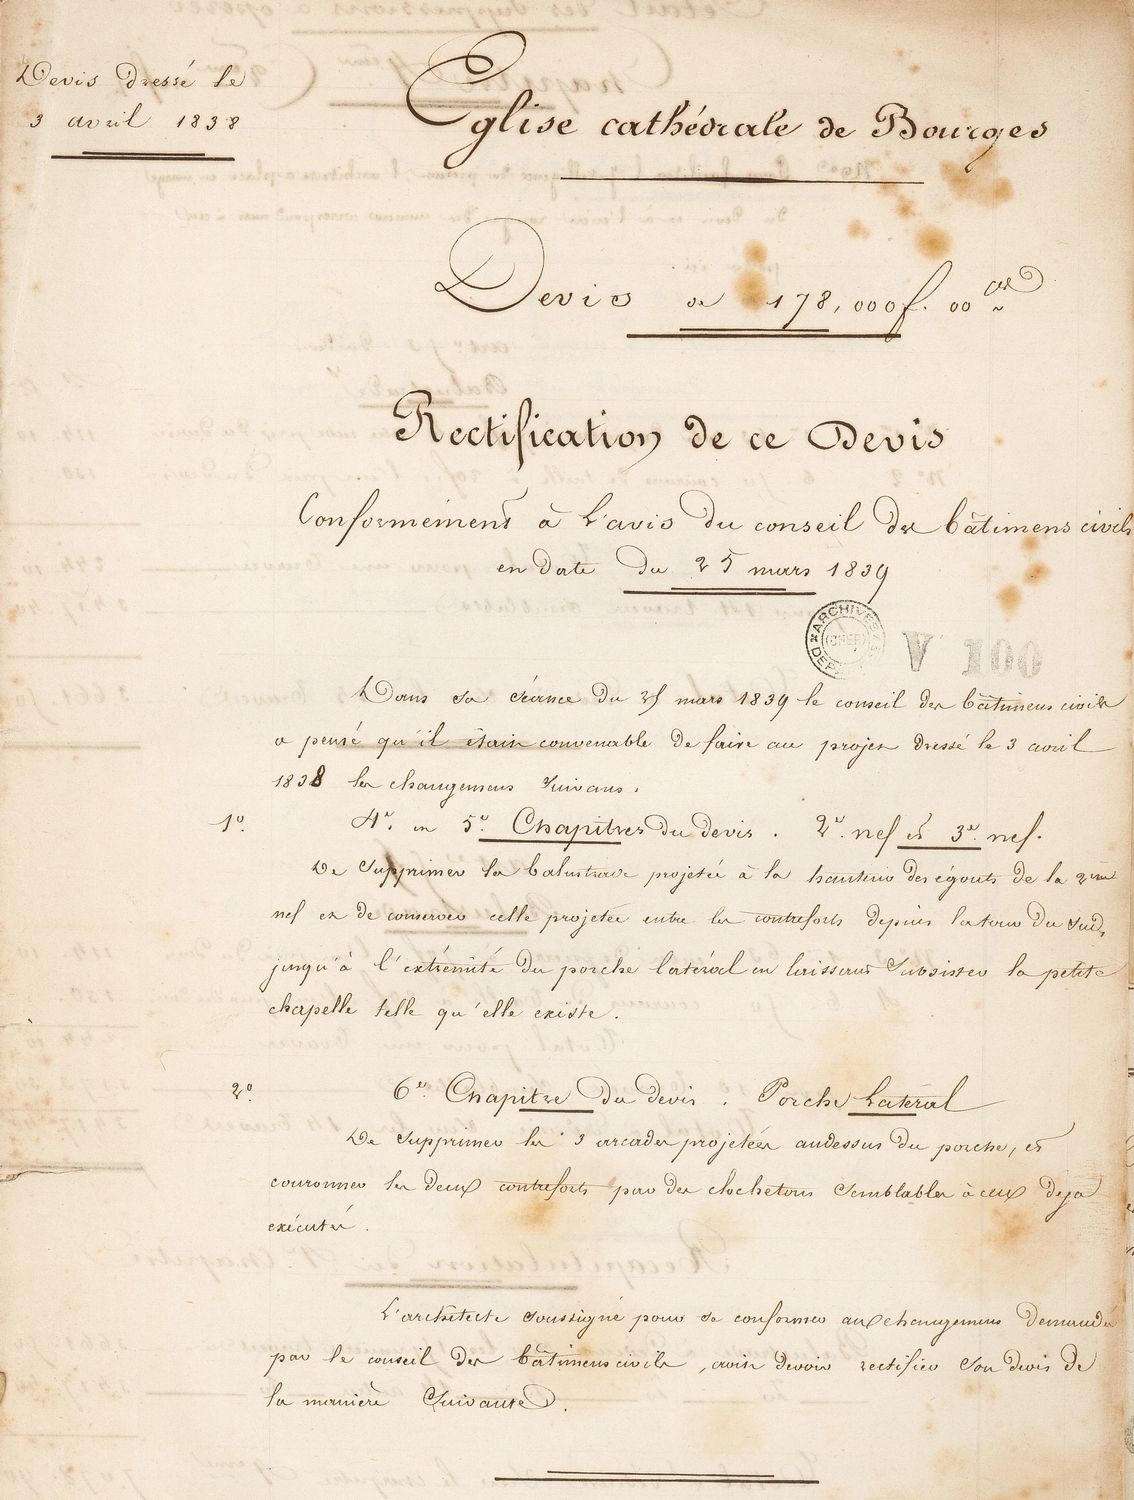 Devis dressé le
3 avril 1838
Eglise cathédrale de Bourges
Devis de 178,000f. 00 cs
Rectification de ce Devis
Conformement à l'avis du conseil des bâtimens civils
en date du 25 mars 1839
ARCHIVES
DEP
(CHER)
V 100
Dans sa séance du 25 mars 1839 le conseil des bâtimens civils
a pensé qu'il était convenable de faire au projet dressé le 3 avril
1838 les changemens suivans.
1º. 4e. et 5e. Chapitres du devis. 2e. nef et 3e. nef.
De supprimer la balustrade projetée à la hauteur des égouts de la 2eme
nef et de conserver celle projetée entre les contreforts depuis la tour du sud,
jusqu'à l'extrémité du porche latéral en laissant subsister la petite
chapelle telle qu'elle existe.
2º. 6e. Chapitre du devis. Porche Latéral
De supprimer les 3 arcades projetées audessus du porche, et
couronner les deux contreforts par des clochetons semblables à ceux deja
exécutés.
L'architecte soussigné pour se conformer aux changemens demandés
par le conseil des bâtimens civils, croit devoir rectifier son devis de
la manière suivante.